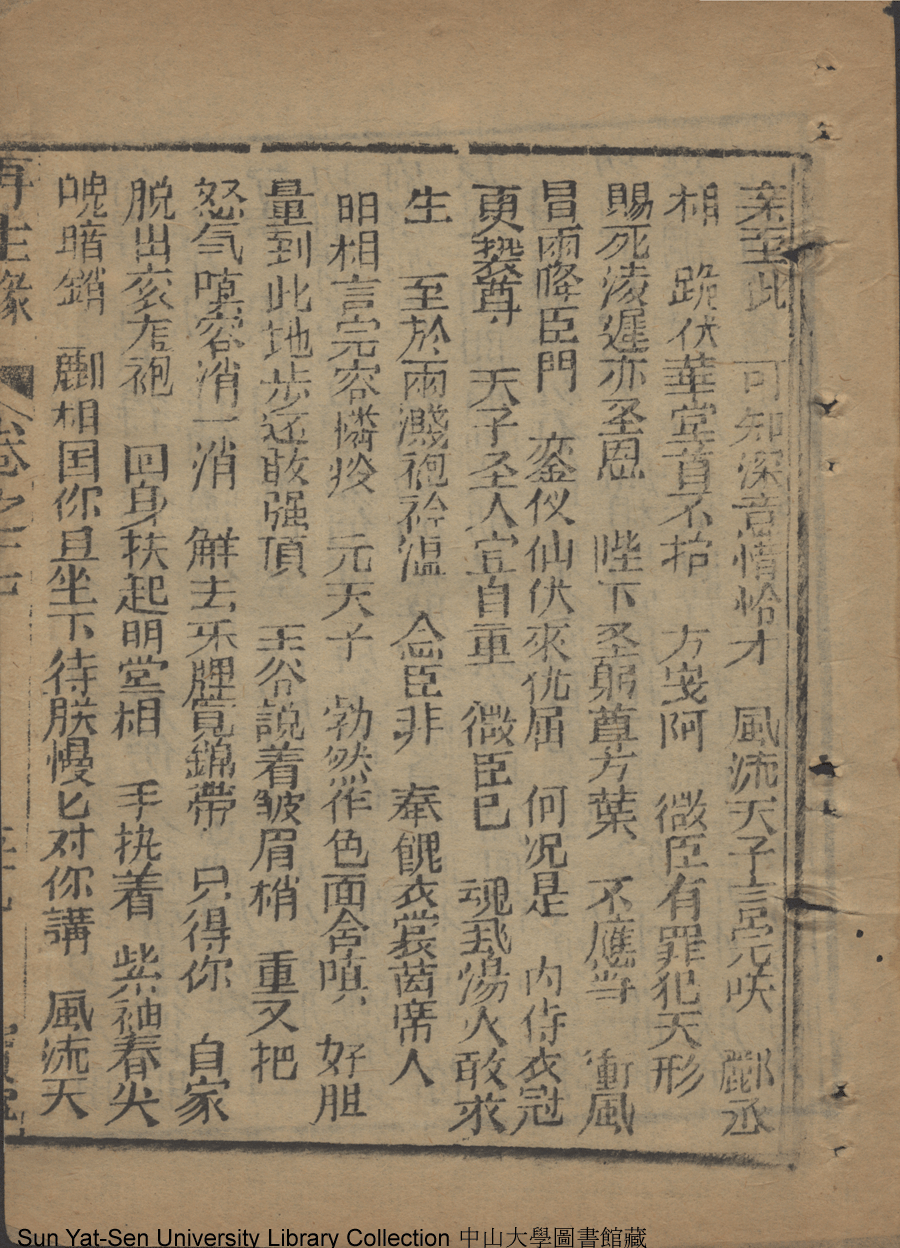 棄至此 可知深意惜怜才 風流天子言完咲 酈丞
相 跪伏華堂首不抬 方叟阿 微臣有罪犯天形
賜死淩遲亦圣恩 陛下圣躬尊方葉 不應当 衝風
冒雨降臣門 鑾仪仙伏來优屈 何况是 内侍衣冠
更褻尊 天子圣人宜自重 微臣已 魂飛湯火敢求
生 至於雨濺袍衿温 念臣非 奉餽衣裳茵席人
明相言完容憐 元天子 勃然作色面含嗔 好胆
量到此地步还敢强頂 王谷説着皱眉梢 重又把
怒气嗔容消一消 解去牙牌寬錦帶 只得你 自家
脱出衮龙袍 回身扶起明堂相 手执着 紫袖春尖
晩暗銷 酈相国你且坐下待朕慢匕对你講 風流天
再生緣 卷之
Sun Yat-Sen University Library Collection 中山大學圖書館藏